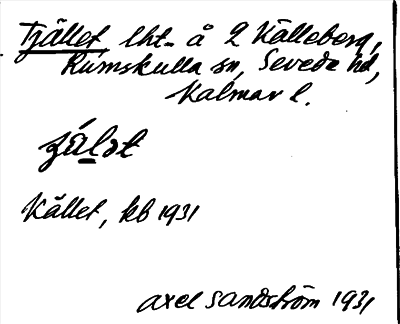 Tjället lht. å 2 Källeberg,
Rumskulla sn, Sevede hd,
Kalmar l.
Kället, kb 1931
Axel Sandström 1931